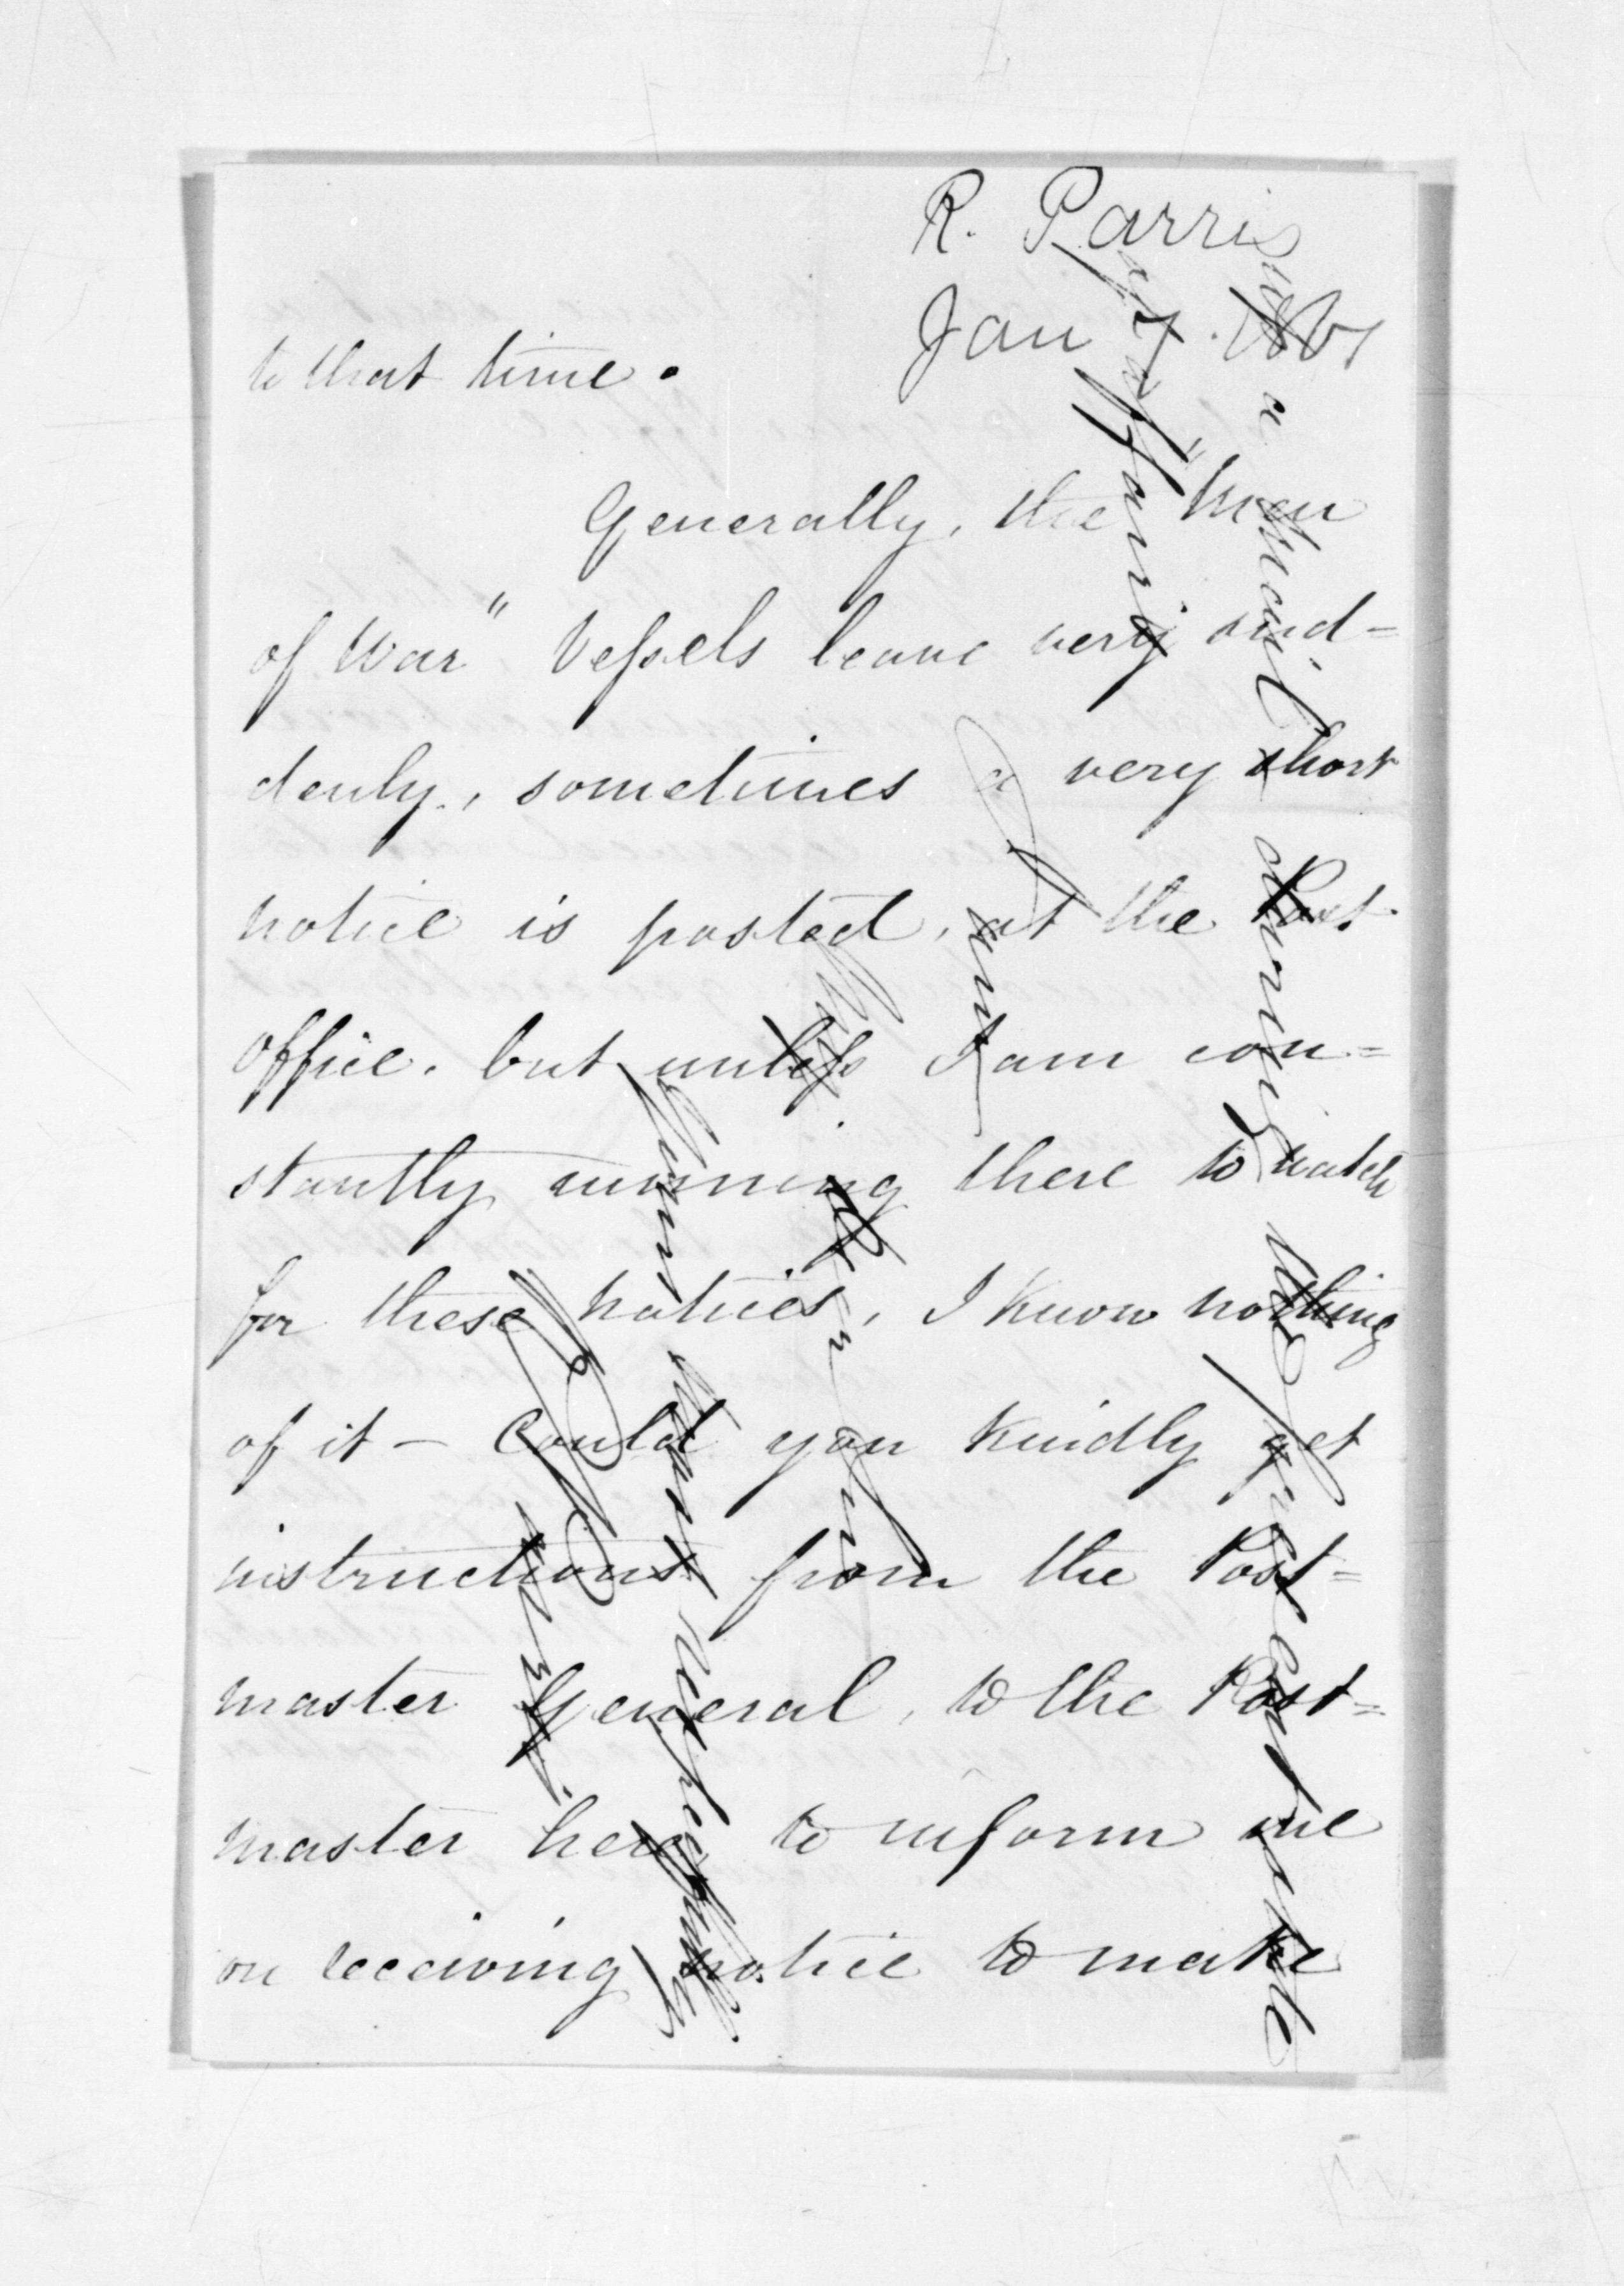 R. Parris
Jan 7. 1861
to that time.
Generally, the "Men
of War" Vessels leave very sud=
denly, sometimes a very short
notice is posted, at the Post
office. but unless I am con=
stantly running there to watch
for these notices, I know nothing
of it — Could you kindly get
instructions from the Post=
master General, to the Post=
master here to inform me
on receiving notice to make
up a mail during
present state
of affairs
I am
Yours Most respectfully